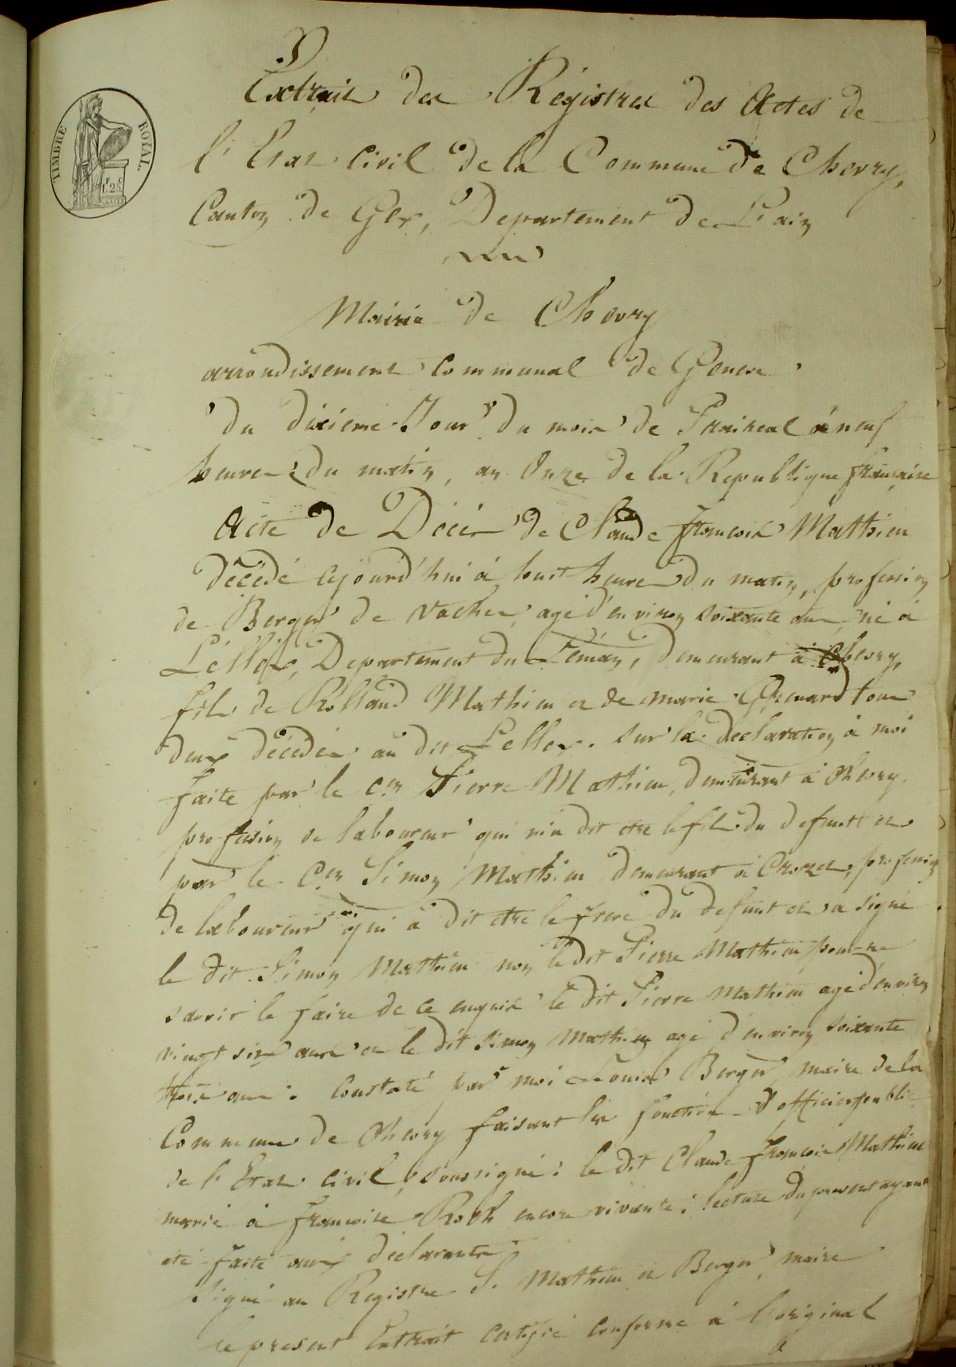 TIMBRE ROYAL.
Extrait des Régistres des Actes de
l'Etat Civil de la Commune de Chevry,
Canton de Gex, Departement de L'ain
Mairie de Chevry
arrondissement Communal de Geneve
du dixieme Jour du mois de Prairéal à neuf
heures du matin, an Onze de la Republique francaise
Acte de Décès de Claude francois Mathieu
décédé cejourd'hui à huit heures du matin, profession
de Berger de vaches, agé d'environ soixante ans, né à
Departement du Léman, demeurant à Chevry,
fils de Rolland Mathieu et de marie tous
deux décédés au dit Sur la declaration à moi
faite par le Cen Pierre Mathieu, demeurant à Chevry,
profession de laboureur qui m'a dit etre le fils du defunt et
par le Cen Simon Mathieu demeurant à profession
de laboureur qui à dit etre le frere du defunt et a signé
le dit Simon Mathieu non le dit Pierre Mathieu pour ne
savoir le faire de ce enquis le dit Pierre Mathieu agé d'environ
vingt six ans et le dit Simon Mathieu agé d'environ soixante
trois ans : Constaté par moi Louis Berger, maire de la
Commune de Chevry faisant les fonctions d'officier public
de l'Etat Civil, soussigné : le dit Claude francois Mathieu
marié à francoise Roch encore vivante : lecture du present ayant
eté faite aux déclarants
Signé au Registre S. Mathieu et Berger, maire
Le present Extrait certifié conforme à l'original